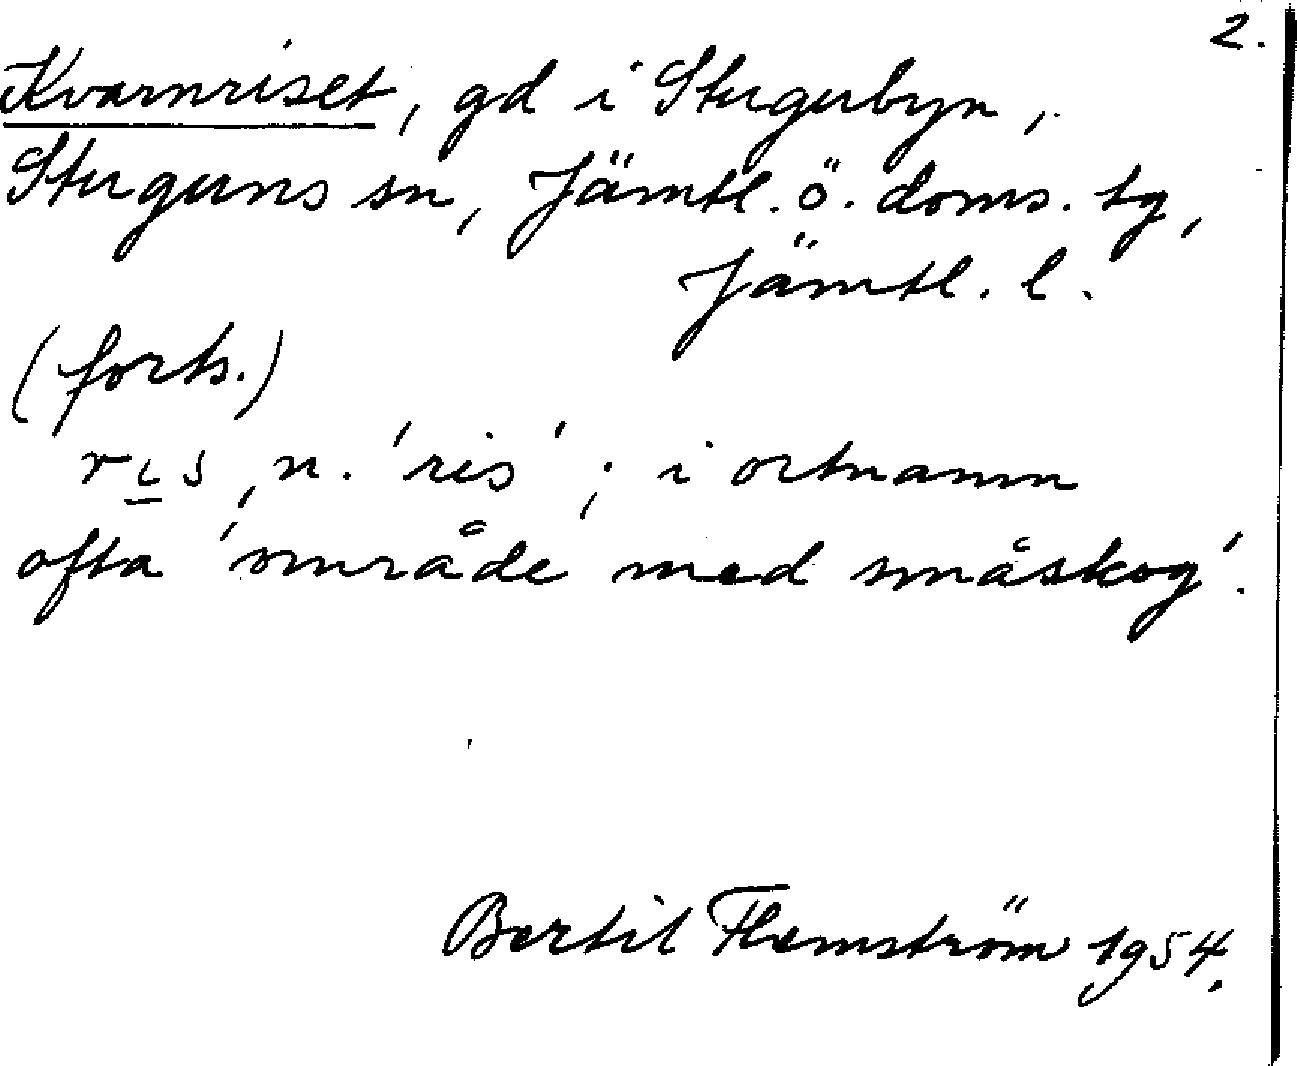 2.
Kvarnriset, gd i Stugubyn,
Stuguns sn, Jämtl. ö. doms. tg,
Jämtl. l.
(forts.)
ris, n. 'ris'; i ortnamn
ofta 'område med småskog'.
Bertil Flemström 1954.